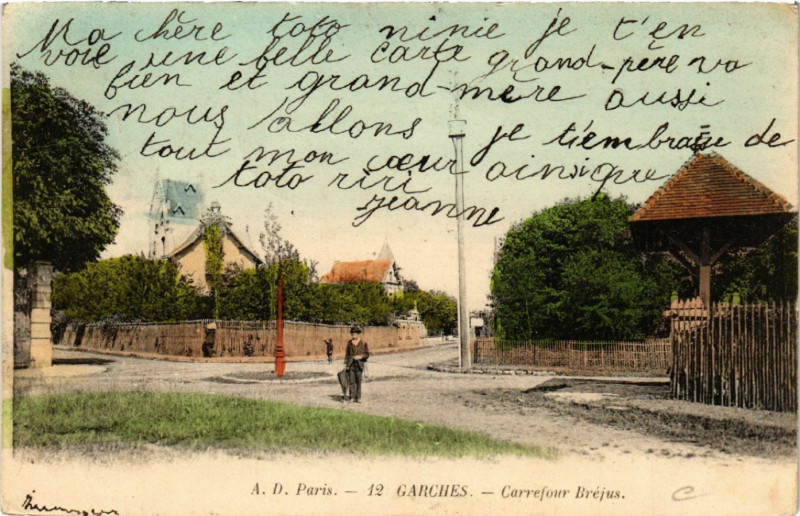 Ma chère toto ninie je t'en
voie une belle carte grand-père va
bien et grand-mère aussi
nous l'allons je t'iembrasse de
tout mon cœur ainsique
toto riri
jeanne
A. D. Paris. — 12 GARCHES. — Carrefour Bréjus.
C